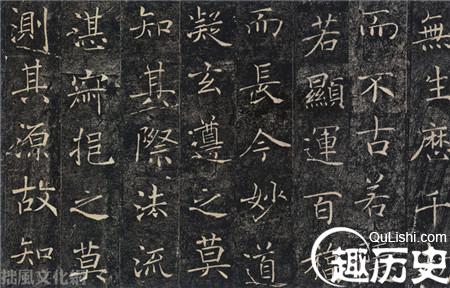 無生歷千
而不古若
若顯運百
而長今妙道
凝玄遵之莫
知其際法流
湛寂挹之莫
測其源故知
QuLishi.com
趣历史
拙風文化網